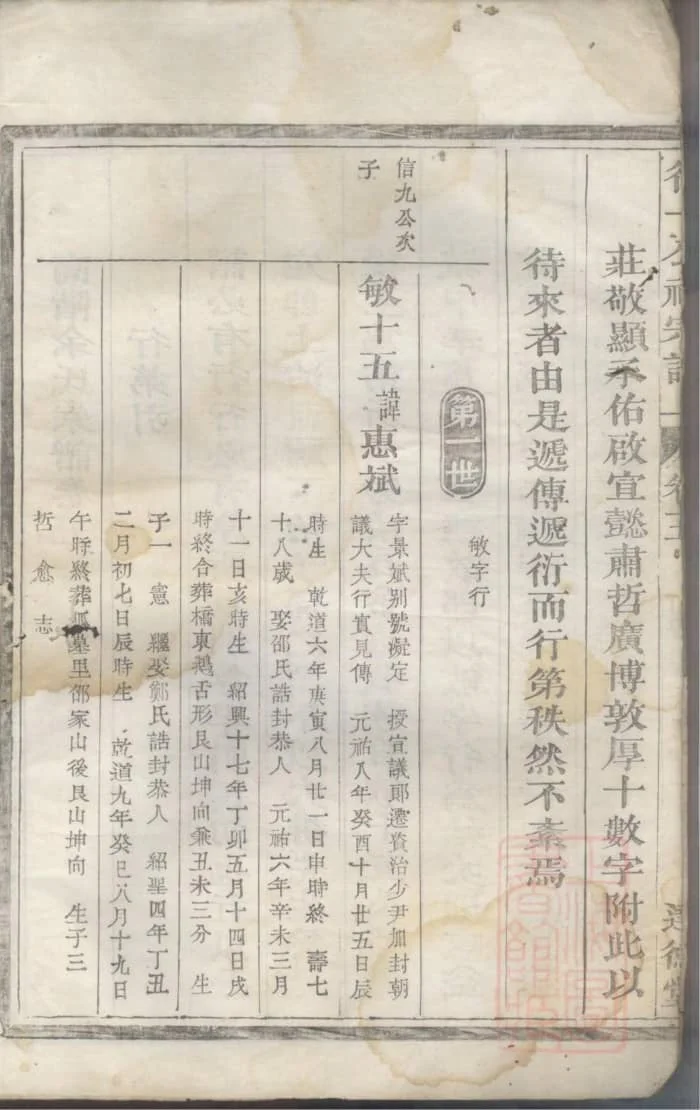 宗譜
卷五
莊敬顯承佑啟宣懿肅哲廣博敦厚十數字附此以
待來者由是遞傳遞衍而行第秩然不紊焉
第一世
敏字行
信九公次
子
敏十五諱惠斌
字景斌别號凝定 授宣議郎遷資治少尹加封朝
議大夫行實見傳 元祐八年癸酉十月廿五日辰
時生 乾道六年庚寅八月廿一日申時終 壽七
十八歲 娶邵氏誥封恭人 元祐六年辛未三月
十一日亥時生 紹興十七年丁卯五月十四日戌
時終合葬橘東鵝舌形艮山坤向兼丑未三分 生
子一 憲 繼娶鄭氏誥封恭人 紹聖四年丁丑
二月初七日辰時生 乾道九年癸巳八月十九日
午時終葬墓里邵家山後艮山坤向 生子三
哲 愈 志